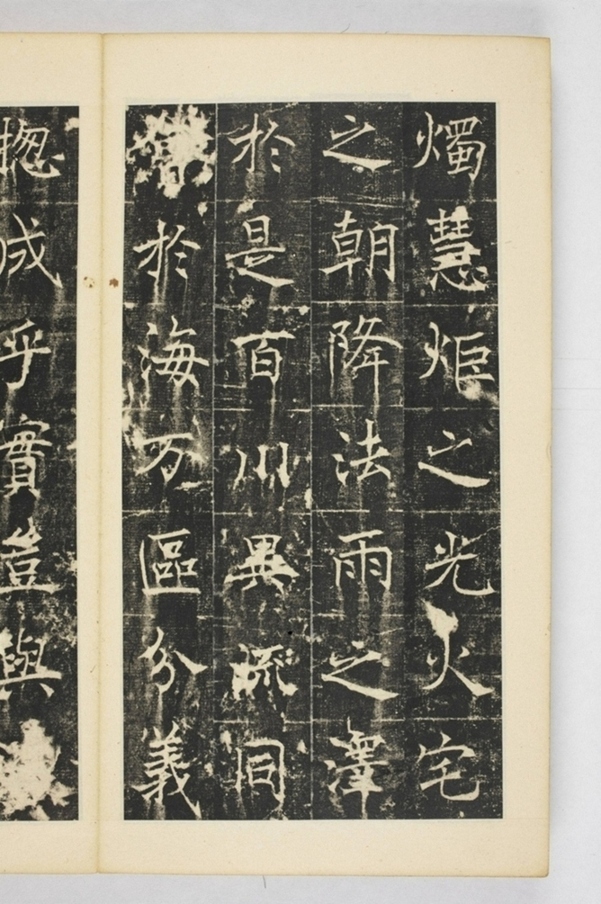 燭慧炬之光火宅
之朝降法雨之澤
於是百川異流同
於海万區分義
揔成乎實豈與